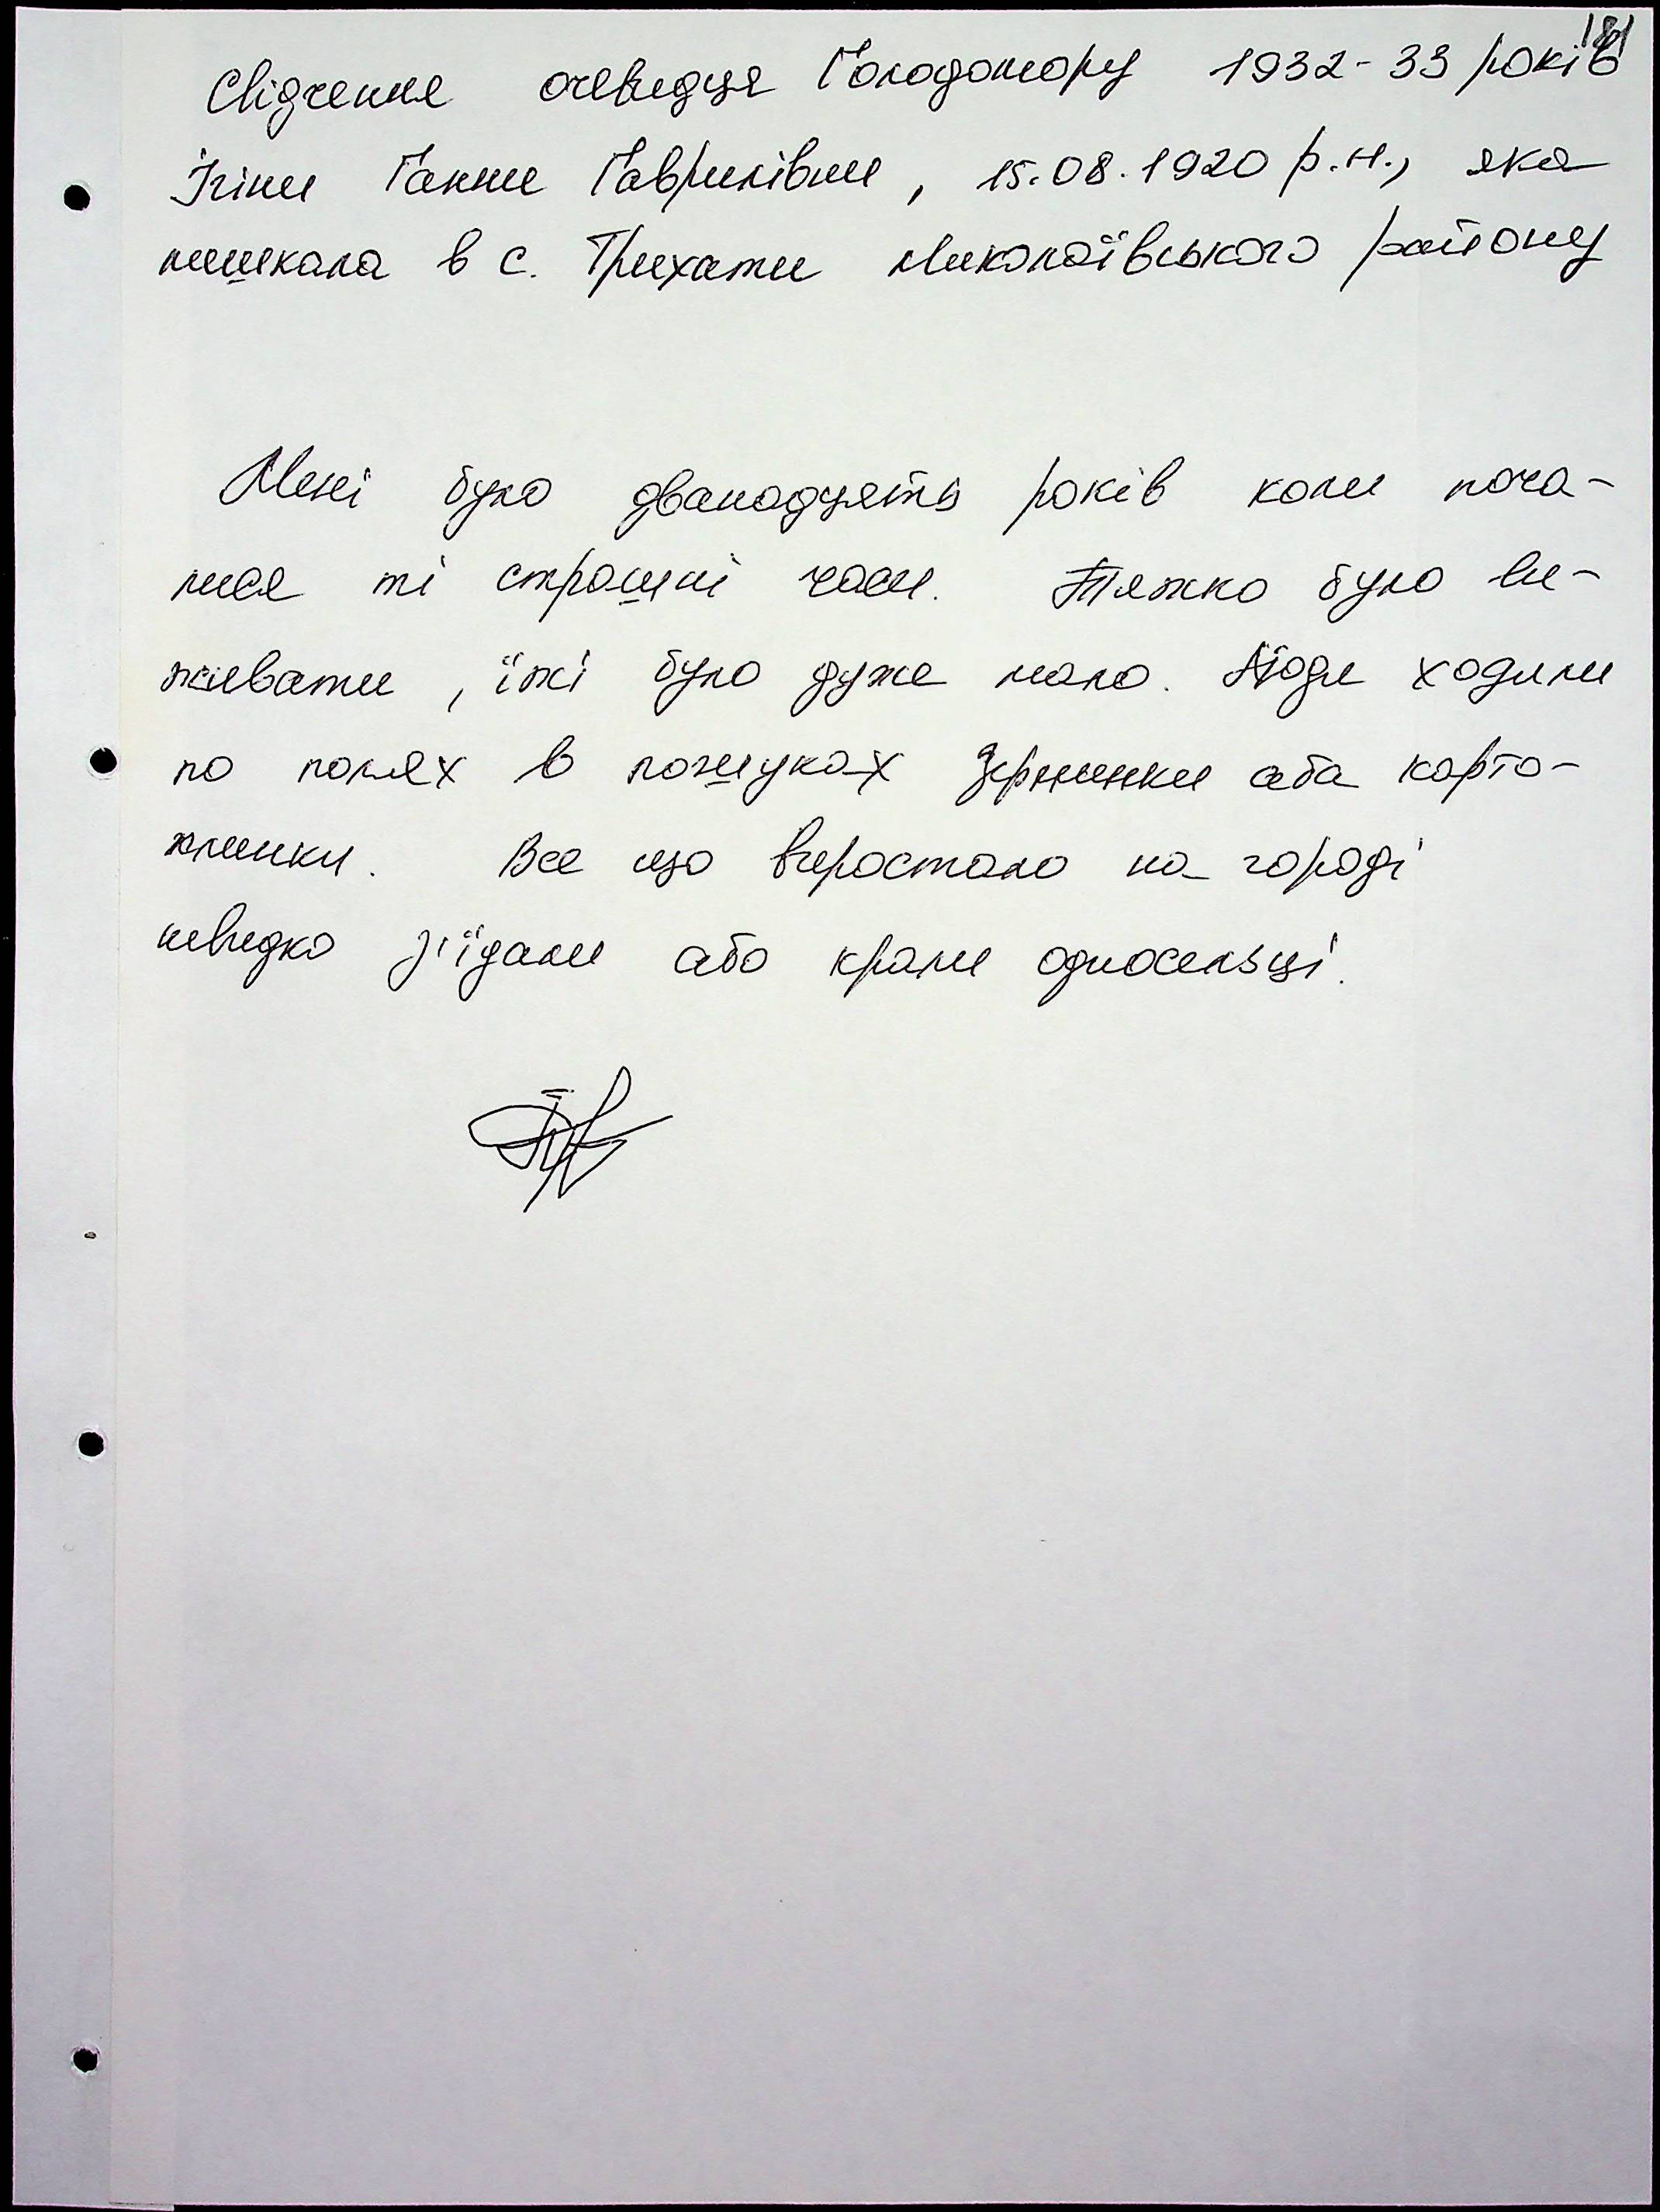 181
Свідчення очевидця Голодомору 1932-33 років
Ганни Гаврилівни, 15.08.1920 р.н., яка
мешкала в с. Трихати Миколаївського району
Мені було дванадцять років коли поча-
лися ті страшні часи. Тяжко було ви-
живати, їжі було дуже мало. Люди ходили
по полях в пошуках зернинки аба карто-
плинки. Все що виростало на городі
швидко з'їдали або крали односельці.